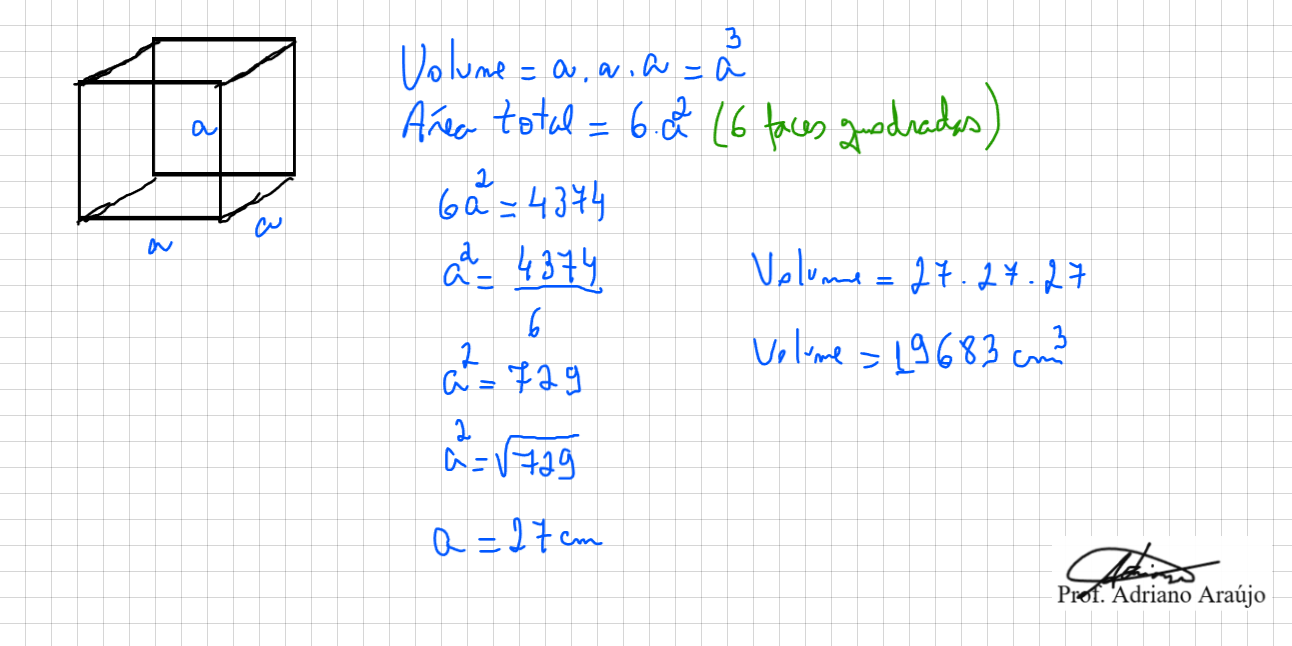 a
a
a
Volume = a . a . a = a³
Área total = 6 . a² (6 faces quadradas)
6a² = 4374
a² = 4374
6
a² = 729
a² = √729
a = 27 cm
Volume = 27 . 27 . 27
Volume = 19683 cm³
Prof. Adriano Araújo